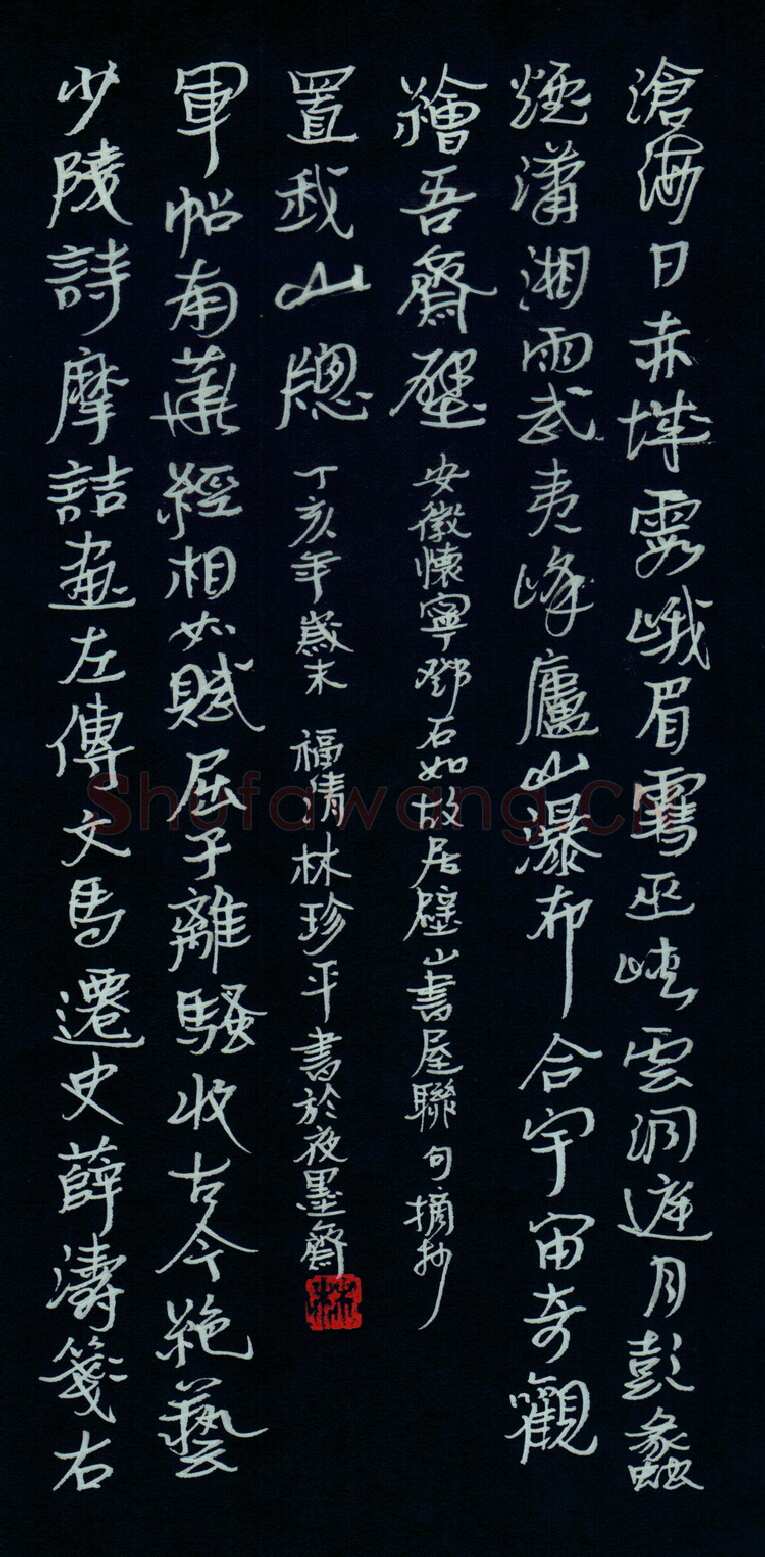 滄海日赤城霞峨眉雪巫峽雲洞庭月彭蠡
煙瀟湘雨武夷峰廬山瀑布合宇宙奇觀
繪吾齋壁 安徽懷寧鄧石如故居壁山書屋聯句摘抄
少陵詩摩詰畫左傳文馬遷史薛濤箋右
軍帖南華經相如賦屈子離騷收古今絶藝
置我山牕 丁亥年歲末 福清林珍平書於夜墨齋
Shufawang.CN